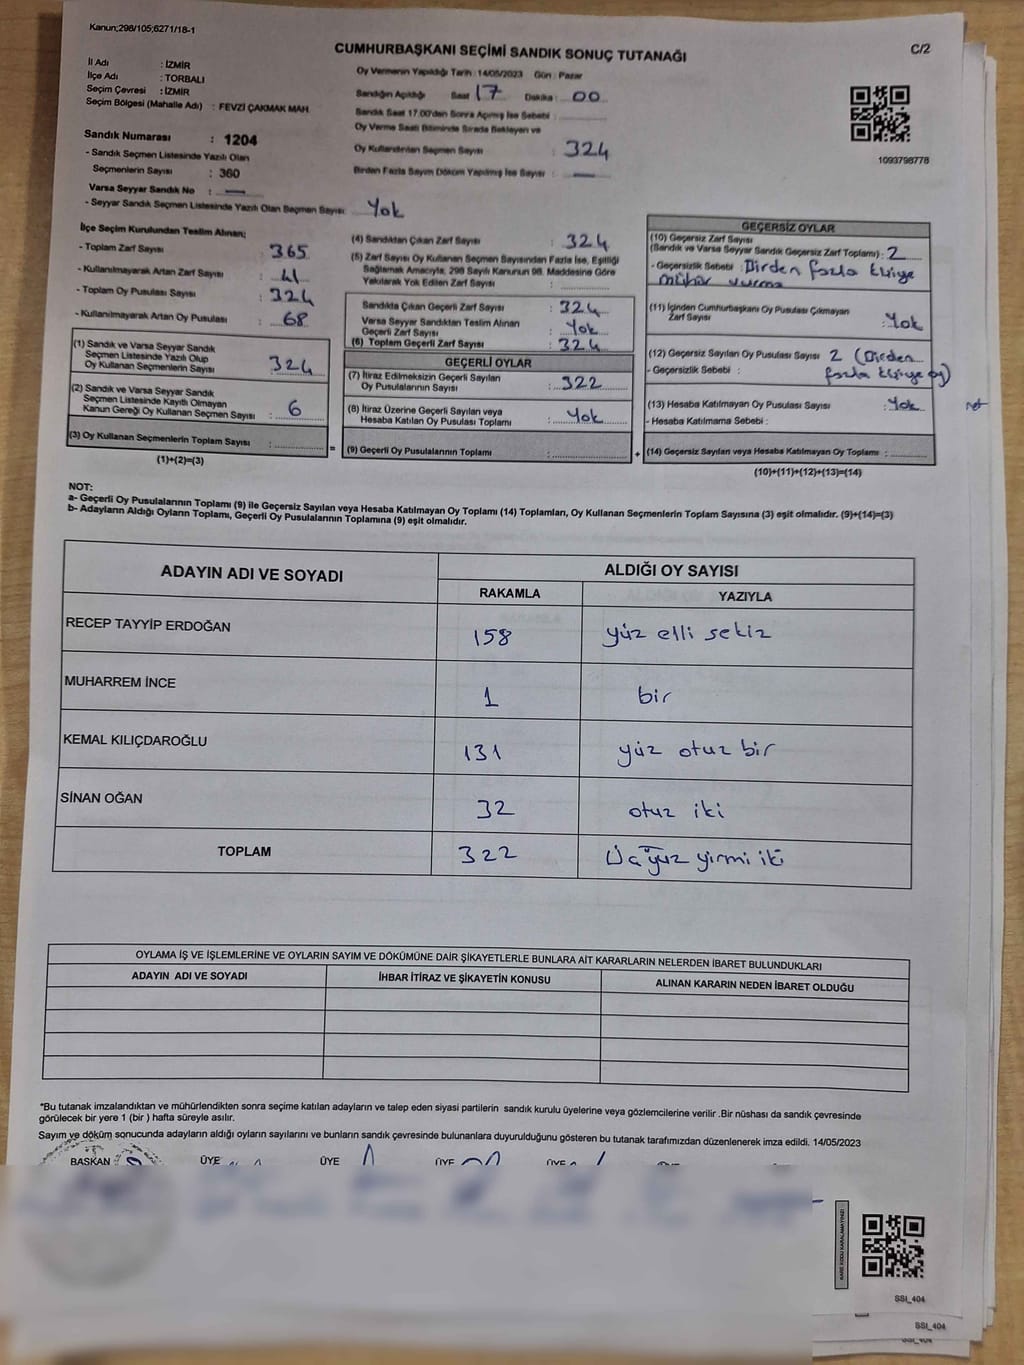 Kanun;298/105;6271/18-1
CUMHURBAŞKANI SEÇİMİ SANDIK SONUÇ TUTANAĞI
C/2
İl Adı : İZMİR
İlçe Adı : TORBALI
Seçim Çevresi : İZMİR
Seçim Bölgesi (Mahalle Adı) : FEVZİ ÇAKMAK MAH.
Oy Vermenin Yapıldığı Tarih : 14/05/2023 Gün : Pazar
Sandığın Açıldığı Saat 17 Dakika : 00
Sandık Saat 17.00'den Sonra Açılmış İse Sebebi :
Oy Verme Saati Bitiminde Sırada Bekleyen ve
Oy Kullandırılan Seçmen Sayısı : 324
Birden Fazla Sayım Döküm Yapılmış İse Sayısı : —
1093798778
Sandık Numarası : 1204
- Sandık Seçmen Listesinde Yazılı Olan
Seçmenlerin Sayısı : 360
Varsa Seyyar Sandık No : —
- Seyyar Sandık Seçmen Listesinde Yazılı Olan Seçmen Sayısı: Yok
İlçe Seçim Kurulundan Teslim Alınan;
- Toplam Zarf Sayısı : 365
- Kullanılmayarak Artan Zarf Sayısı : 41
- Toplam Oy Pusulası Sayısı : 324
- Kullanılmayarak Artan Oy Pusulası : 68
(1) Sandık ve Varsa Seyyar Sandık
Seçmen Listesinde Yazılı Olup
Oy Kullanan Seçmenlerin Sayısı : 324
(2) Sandık ve Varsa Seyyar Sandık
Seçmen Listesinde Kayıtlı Olmayan
Kanun Gereği Oy Kullanan Seçmen Sayısı : 6
(3) Oy Kullanan Seçmenlerin Toplam Sayısı :
(1)+(2)=(3)
(4) Sandıktan Çıkan Zarf Sayısı : 324
(5) Zarf Sayısı Oy Kullanan Seçmen Sayısından Fazla İse, Eşitliği
Sağlamak Amacıyla, 298 Sayılı Kanunun 98. Maddesine Göre
Yakılarak Yok Edilen Zarf Sayısı :
Sandıkta Çıkan Geçerli Zarf Sayısı : 324
Varsa Seyyar Sandıktan Teslim Alınan
Geçerli Zarf Sayısı : Yok
(6) Toplam Geçerli Zarf Sayısı : 324
GEÇERLİ OYLAR
(7) İtiraz Edilmeksizin Geçerli Sayılan
Oy Pusulalarının Sayısı : 322
(8) İtiraz Üzerine Geçerli Sayılan veya
Hesaba Katılan Oy Pusulası Toplamı : Yok
(9) Geçerli Oy Pusulalarının Toplamı :
GEÇERSİZ OYLAR
(10) Geçersiz Zarf Sayısı
(Sandık ve Varsa Seyyar Sandık Geçersiz Zarf Toplamı) : 2
- Geçersizlik Sebebi : Birden fazla kişiye
mühür vurma
(11) İçinden Cumhurbaşkanı Oy Pusulası Çıkmayan
Zarf Sayısı : Yok
(12) Geçersiz Sayılan Oy Pusulası Sayısı 2 (Birden
- Geçersizlik Sebebi : fazla kişiye oy)
(13) Hesaba Katılmayan Oy Pusulası Sayısı : Yok
- Hesaba Katılmama Sebebi :
(14) Geçersiz Sayılan veya Hesaba Katılmayan Oy Toplamı :
(10)+(11)+(12)+(13)=(14)
NOT:
a- Geçerli Oy Pusulalarının Toplamı (9) ile Geçersiz Sayılan veya Hesaba Katılmayan Oy Toplamı (14) Toplamları, Oy Kullanan Seçmenlerin Toplam Sayısına (3) eşit olmalıdır. (9)+(14)=(3)
b- Adayların Aldığı Oyların Toplamı, Geçerli Oy Pusulalarının Toplamına (9) eşit olmalıdır.
ADAYIN ADI VE SOYADI ALDIĞI OY SAYISI
RAKAMLA YAZIYLA
RECEP TAYYİP ERDOĞAN 158 yüz elli sekiz
MUHARREM İNCE 1 bir
KEMAL KILIÇDAROĞLU 131 yüz otuz bir
SİNAN OĞAN 32 otuz iki
TOPLAM 322 Üçyüz yirmi iki
OYLAMA İŞ VE İŞLEMLERİNE VE OYLARIN SAYIM VE DÖKÜMÜNE DAİR ŞİKAYETLERLE BUNLARA AİT KARARLARIN NELERDEN İBARET BULUNDUKLARI
ADAYIN ADI VE SOYADI İHBAR İTİRAZ VE ŞİKAYETİN KONUSU ALINAN KARARIN NEDEN İBARET OLDUĞU
*Bu tutanak imzalandıktan ve mühürlendikten sonra seçime katılan adayların ve talep eden siyasi partilerin sandık kurulu üyelerine veya gözlemcilerine verilir .Bir nüshası da sandık çevresinde
görülecek bir yere 1 (bir ) hafta süreyle asılır.
Sayım ve döküm sonucunda adayların aldığı oyların sayılarını ve bunların sandık çevresinde bulunanlara duyurulduğunu gösteren bu tutanak tarafımızdan düzenlenerek imza edildi. 14/05/2023
BAŞKAN ÜYE ÜYE ÜYE ÜYE
KARE KODU KARALAMAYINIZ!
SSI_404
SSI_404
SSI_404